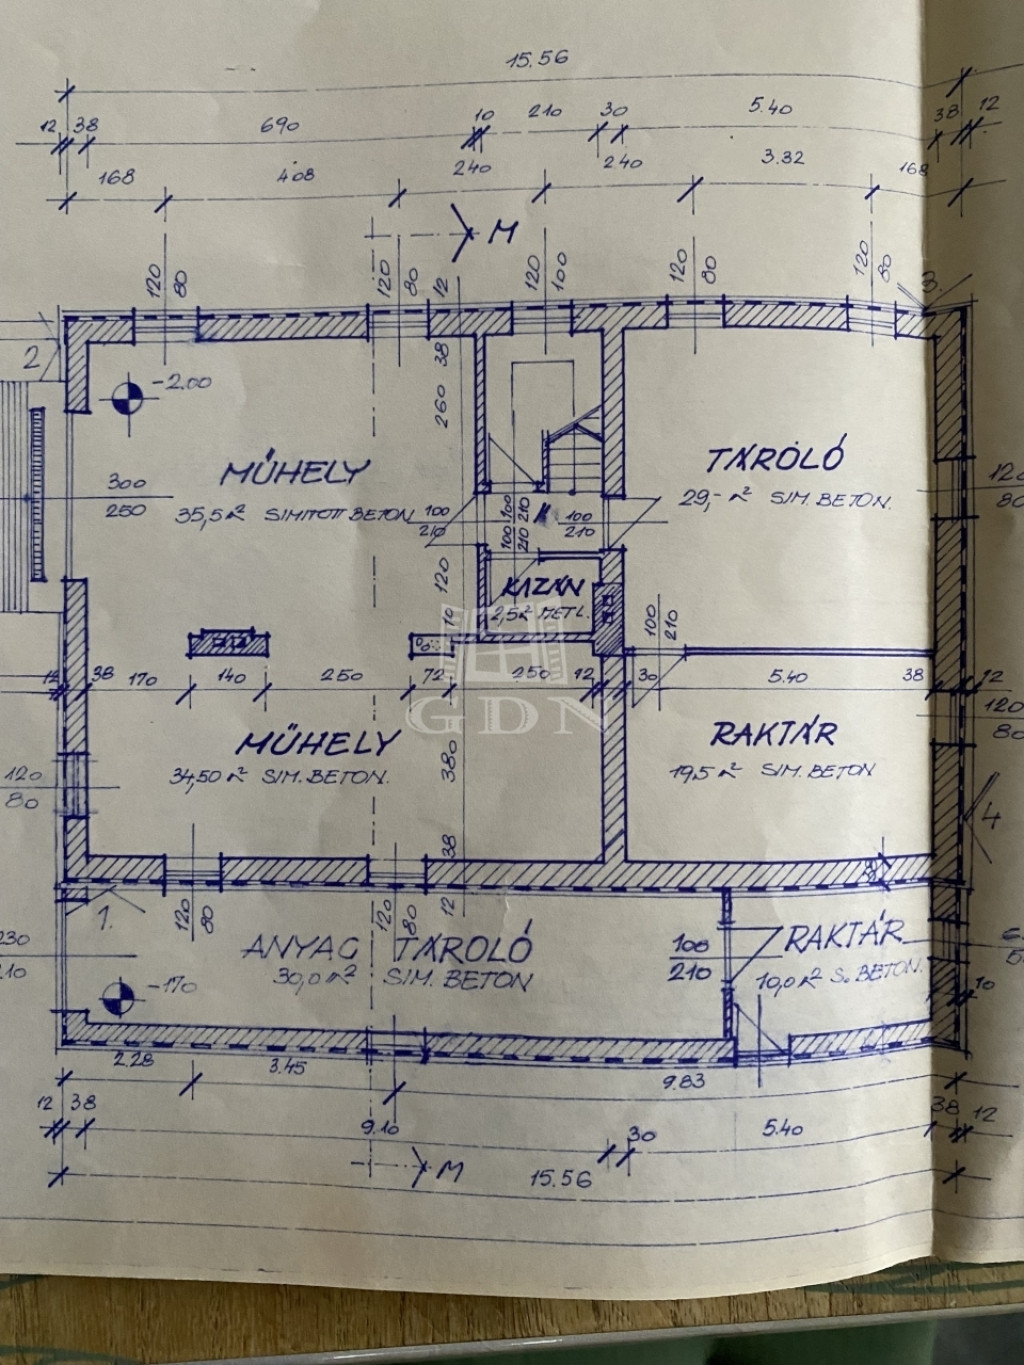 15.56
12 38 690 10 210 30 5.40 38 12
168 408 240 240 3.32 168
M
120 80
120 80
120 100
120 80
120 80
12
38
260
2
3.
-2.00
MŰHELY
35,5 m² SIMITOTT BETON
300
250
100
210
100
210
100
210
100
210
TÁROLÓ
29,- m² SIM. BETON.
120
80
120
10
KAZÁN
2,5 m² METL.
100
210
GDN
12 38 170 140 250 72 250 12 30 5.40 38 12
120
80
MŰHELY
34,50 m² SIM. BETON.
380
RAKTÁR
19,5 m² SIM. BETON
120
80
4
38
12
1.
120
80
120
80
230
210
ANYAG TÁROLÓ
30,0 m² SIM. BETON
100
210
RAKTÁR
10,0 m² S. BETON.
10
-170
2.28 3.45 9.83
12 38 9.10 30 5.40 38 12
M
15.56